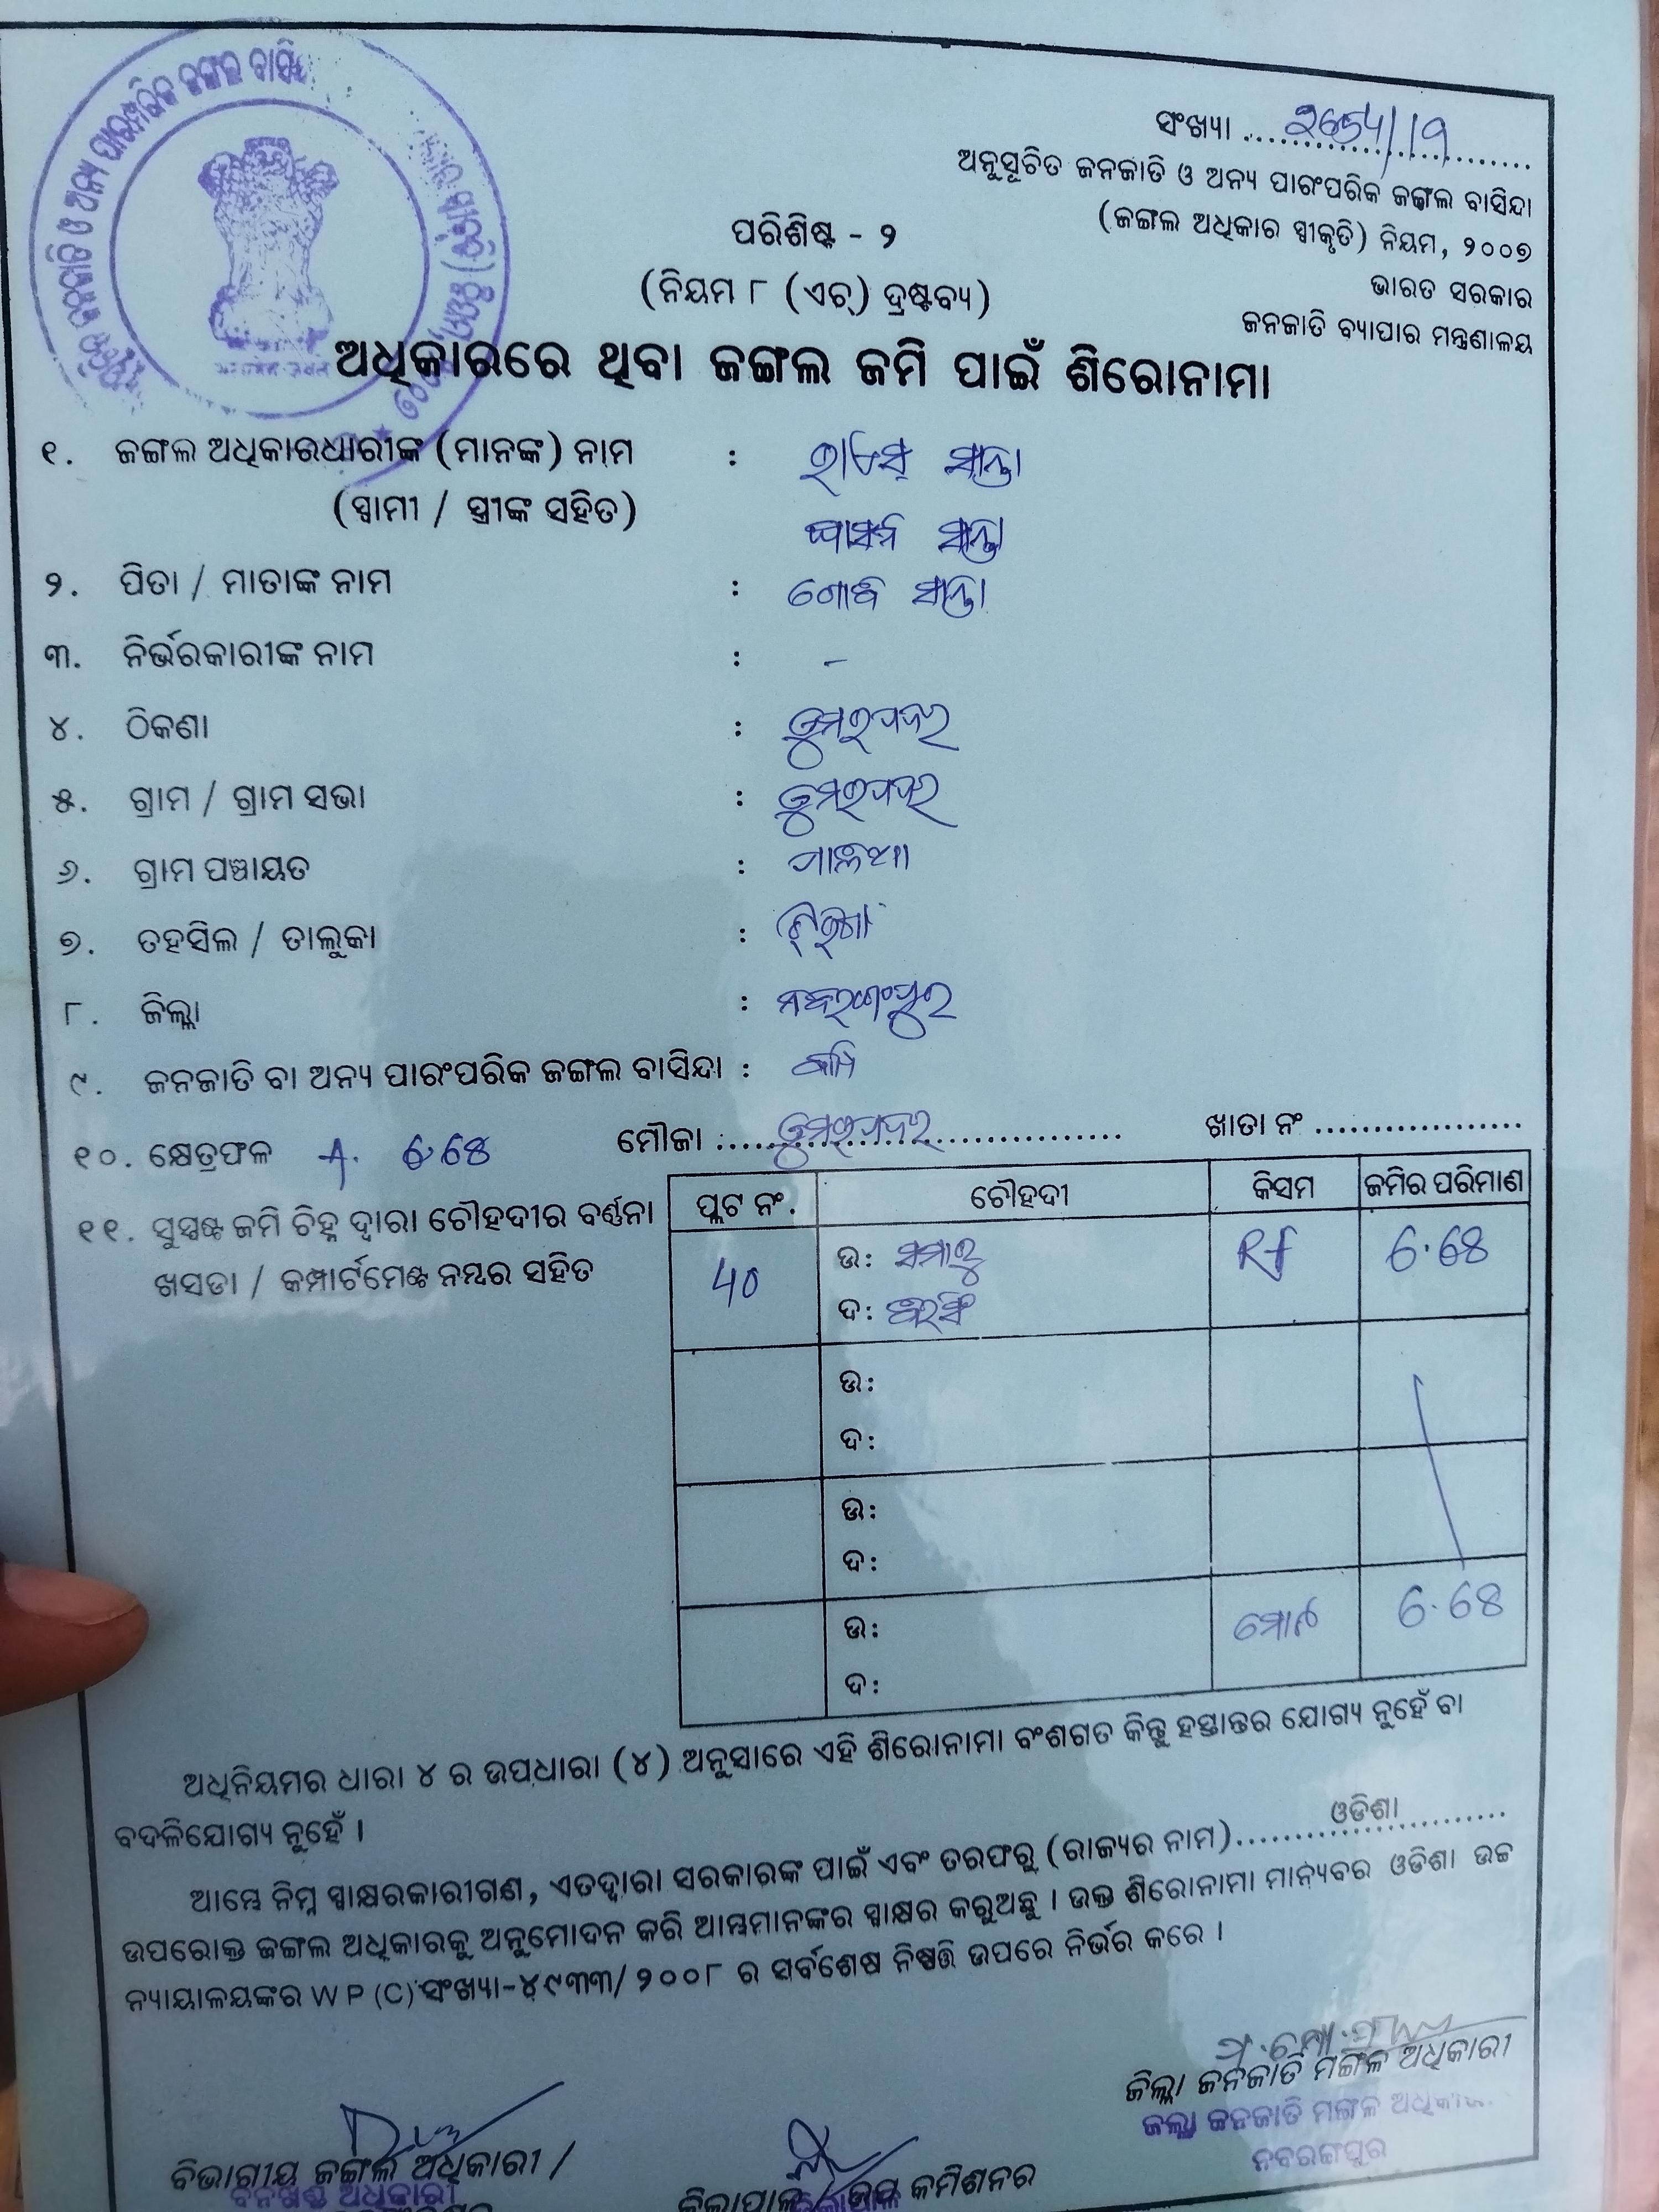 ସଂଖ୍ୟା
ଅନୁସୂଚିତ ଜନଜାତି ଓ ଅନ୍ୟ ପାରଂପରିକ ଜଙ୍ଗଲ ବାସିନ୍ଦା
(ଜଙ୍ଗଲ ଅଧିକାର ସ୍ୱୀକୃତି) ନିୟମ, ୨୦୦୭
ଭାରତ ସରକାର
ଜନଜାତି ବ୍ୟାପାର ମନ୍ତ୍ରଣାଳୟ
ପରିଶିଷ୍ଟ - ୨
(ନିୟମ ୮ (ଏଚ୍) ଦ୍ରଷ୍ଟବ୍ୟ)
ଅଧିକାରରେ ଥିବା ଜଙ୍ଗଲ ଜମି ପାଇଁ ଶିରୋନାମା
୧. ଜଙ୍ଗଲ ଅଧିକାରଧାରୀଙ୍କ (ମାନଙ୍କ) ନାମ :
(ସ୍ୱାମୀ / ସ୍ତ୍ରୀଙ୍କ ସହିତ)
୨. ପିତା / ମାତାଙ୍କ ନାମ :
୩. ନିର୍ଭରକାରୀଙ୍କ ନାମ : -
୪. ଠିକଣା : ଡୁମରପଦର
୫. ଗ୍ରାମ / ଗ୍ରାମ ସଭା : ଡୁମରପଦର
୬. ଗ୍ରାମ ପଞ୍ଚାୟତ :
୭. ତହସିଲ / ତାଲୁକା :
୮. ଜିଲ୍ଲା : ନବରଙ୍ଗପୁର
୯. ଜନଜାତି ବା ଅନ୍ୟ ପାରଂପରିକ ଜଙ୍ଗଲ ବାସିନ୍ଦା :
୧୦. କ୍ଷେତ୍ରଫଳ A. 6.68 ମୌଜା : ଡୁମରପଦର ଖାତା ନଂ
୧୧. ସୁସ୍ପଷ୍ଟ ଜମି ଚିହ୍ନ ଦ୍ୱାରା ଚୌହଦୀର ବର୍ଣ୍ଣନା
ଖସଡା / କମ୍ପାର୍ଟମେଣ୍ଟ ନମ୍ବର ସହିତ
ପ୍ଲଟ ନଂ. ଚୌହଦୀ କିସମ ଜମିର ପରିମାଣ
40 ଉ: ସମାରୁ Rf 6.68
ଦ:
ଉ:
ଦ:
ଉ:
ଦ:
ଉ: ମୋଟ 6.68
ଦ:
ଅଧିନିୟମର ଧାରା ୪ ର ଉପଧାରା (୪) ଅନୁସାରେ ଏହି ଶିରୋନାମା ବଂଶଗତ କିନ୍ତୁ ହସ୍ତାନ୍ତର ଯୋଗ୍ୟ ନୁହେଁ ବା
ବଦଳିଯୋଗ୍ୟ ନୁହେଁ ।
ଆମ୍ଭେ ନିମ୍ନ ସ୍ୱାକ୍ଷରକାରୀଗଣ, ଏତଦ୍ୱାରା ସରକାରଙ୍କ ପାଇଁ ଏବଂ ତରଫରୁ (ରାଜ୍ୟର ନାମ) ଓଡିଶା
ଉପରୋକ୍ତ ଜଙ୍ଗଲ ଅଧିକାରକୁ ଅନୁମୋଦନ କରି ଆମ୍ଭମାନଙ୍କର ସ୍ୱାକ୍ଷର କରୁଅଛୁ । ଉକ୍ତ ଶିରୋନାମା ମାନ୍ୟବର ଓଡିଶା ଉଚ୍ଚ
ନ୍ୟାୟାଳୟଙ୍କର W P (C) ସଂଖ୍ୟା-୪୯୩୩/୨୦୦୮ ର ସର୍ବଶେଷ ନିଷ୍ପତ୍ତି ଉପରେ ନିର୍ଭର କରେ ।
ଜିଲ୍ଲା ଜନଜାତି ମଙ୍ଗଳ ଅଧିକାରୀ
ଜିଲ୍ଲା ଜନଜାତି ମଙ୍ଗଳ
ନବରଙ୍ଗପୁର
ବିଭାଗୀୟ ଜଙ୍ଗଲ ଅଧିକାରୀ /
ଜିଲାପାଳ / ଉପ କମିଶନର